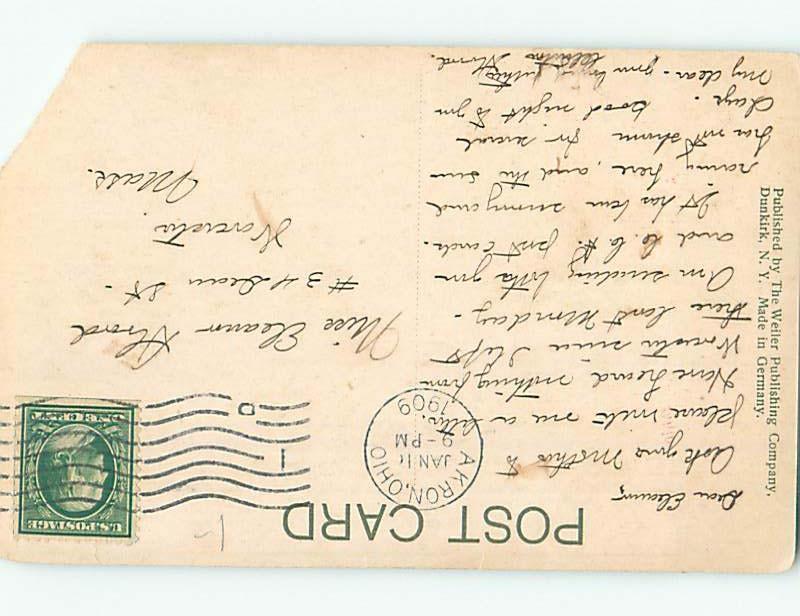 POST CARD
Dear Eleanor,
Ask your mother to
please write me a letter.
Have heard nothing from
Worcester since I left
there last Monday.
Am sending both you
and C. C. H. post cards.
It has been
rainy here, and the sun
has not shown for several
days. Good night to you
my dear. from
AKRON, OHIO
JAN 1
9-PM
1909
D
1
U.S. POSTAGE
ONE CENT
Miss Eleanor
#34 Dean St.
Worcester
Mass.
Published by The Weiler Publishing Company,
Dunkirk, N. Y. Made in Germany.